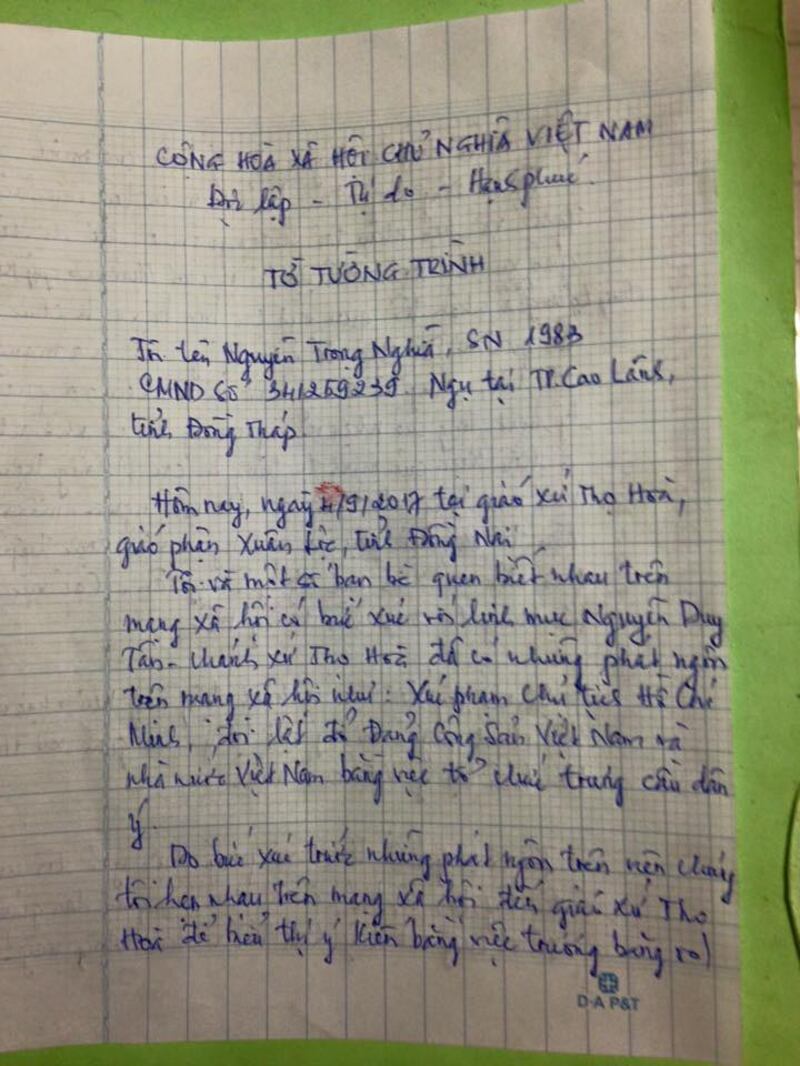 CỘNG HOÀ XÃ HỘI CHỦ NGHĨA VIỆT NAM
Độc lập - Tự do - Hạnh phúc.
TỜ TƯỜNG TRÌNH
Tôi tên Nguyễn Trọng Nghĩa, SN 1983
CMND số 341259239 Ngụ tại TP. Cao Lãnh,
tỉnh Đồng Tháp
Hôm nay, ngày 4/9/2017 tại giáo xứ Thọ Hoà,
giáo phận Xuân Lộc, tỉnh Đồng Nai
Tôi và một số bạn bè quen biết nhau trên
mạng xã hội có bức xúc với linh mục Nguyễn Duy
Tân - chánh xứ Thọ Hoà đã có những phát ngôn
trên mạng xã hội như: Xúc phạm Chủ tịch Hồ Chí
Minh, đòi lật đổ Đảng Cộng Sản Việt Nam và
nhà nước Việt Nam bằng việc tổ chức trưng cầu dân
ý.
Do bức xúc trước những phát ngôn trên nên chúng
tôi hẹn nhau trên mạng xã hội đến giáo xứ Thọ
Hoà để biểu thị ý kiến bằng việc trương băng rol
D-A P&T